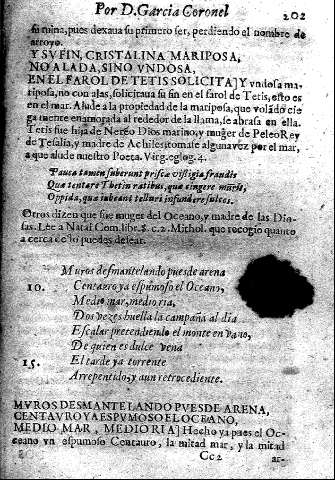 Por D. Garcia Coronel
202
su ruina, pues dexaua su primero ser, perdiendo el nombre de
arroyo.
Y SV FIN, CRISTALINA MARIPOSA,
NO ALADA, SINO VNDOSA,
EN EL FAROL DE TETIS SOLICITA] Y vndosa ma-
riposa, no con alas, solicitaua su fin en el farol de Tetis, esto es
en el mar. Alude a la propiedad de la mariposa, que volãdo cie-
ga fuente enamorada al rededor de la llama, se abrasa en ella.
Tetis fue hija de Nereo Dios marino, y muger de Peleo Rey
de Tesalia, y madre de Achiles: tomase alguna vez por el mar,
a que alude nuestro Poeta. Virg. eglog. 4.
Pauca tamen suberunt priscæ vistigia fraudis
Quæ tentare Thetin ratibus, quæ cingere muris,
Oppida, quæ iubeant telluri infundere sulcos.
Otros dizen que fue muger del Oceano, y madre de las Dio-
sas. Lee a Natal Com. libr. 8. c. 2. Mithol. que recogio quanto
a cerca desto puedes desear.
Muros desmantelando pues de arena
10. Centauro ya espumoso el Oceano,
Medio mar, medio ria,
Dos vezes huella la campaña al dia
Escalar pretendiendo el monte en vano,
De quien es dulce vena
15. El tarde ya torrente
Arrepentido, y aun retrocediente.
MVROS DESMANTELANDO PVES DE ARENA,
CENTAVRO YA ESPVMOSO EL OCEANO,
MEDIO MAR, MEDIO RIA] Hecho ya pues el Oc-
ceano vn espumoso Centauro, la mitad mar, y la mitad
Cc 2
ar-